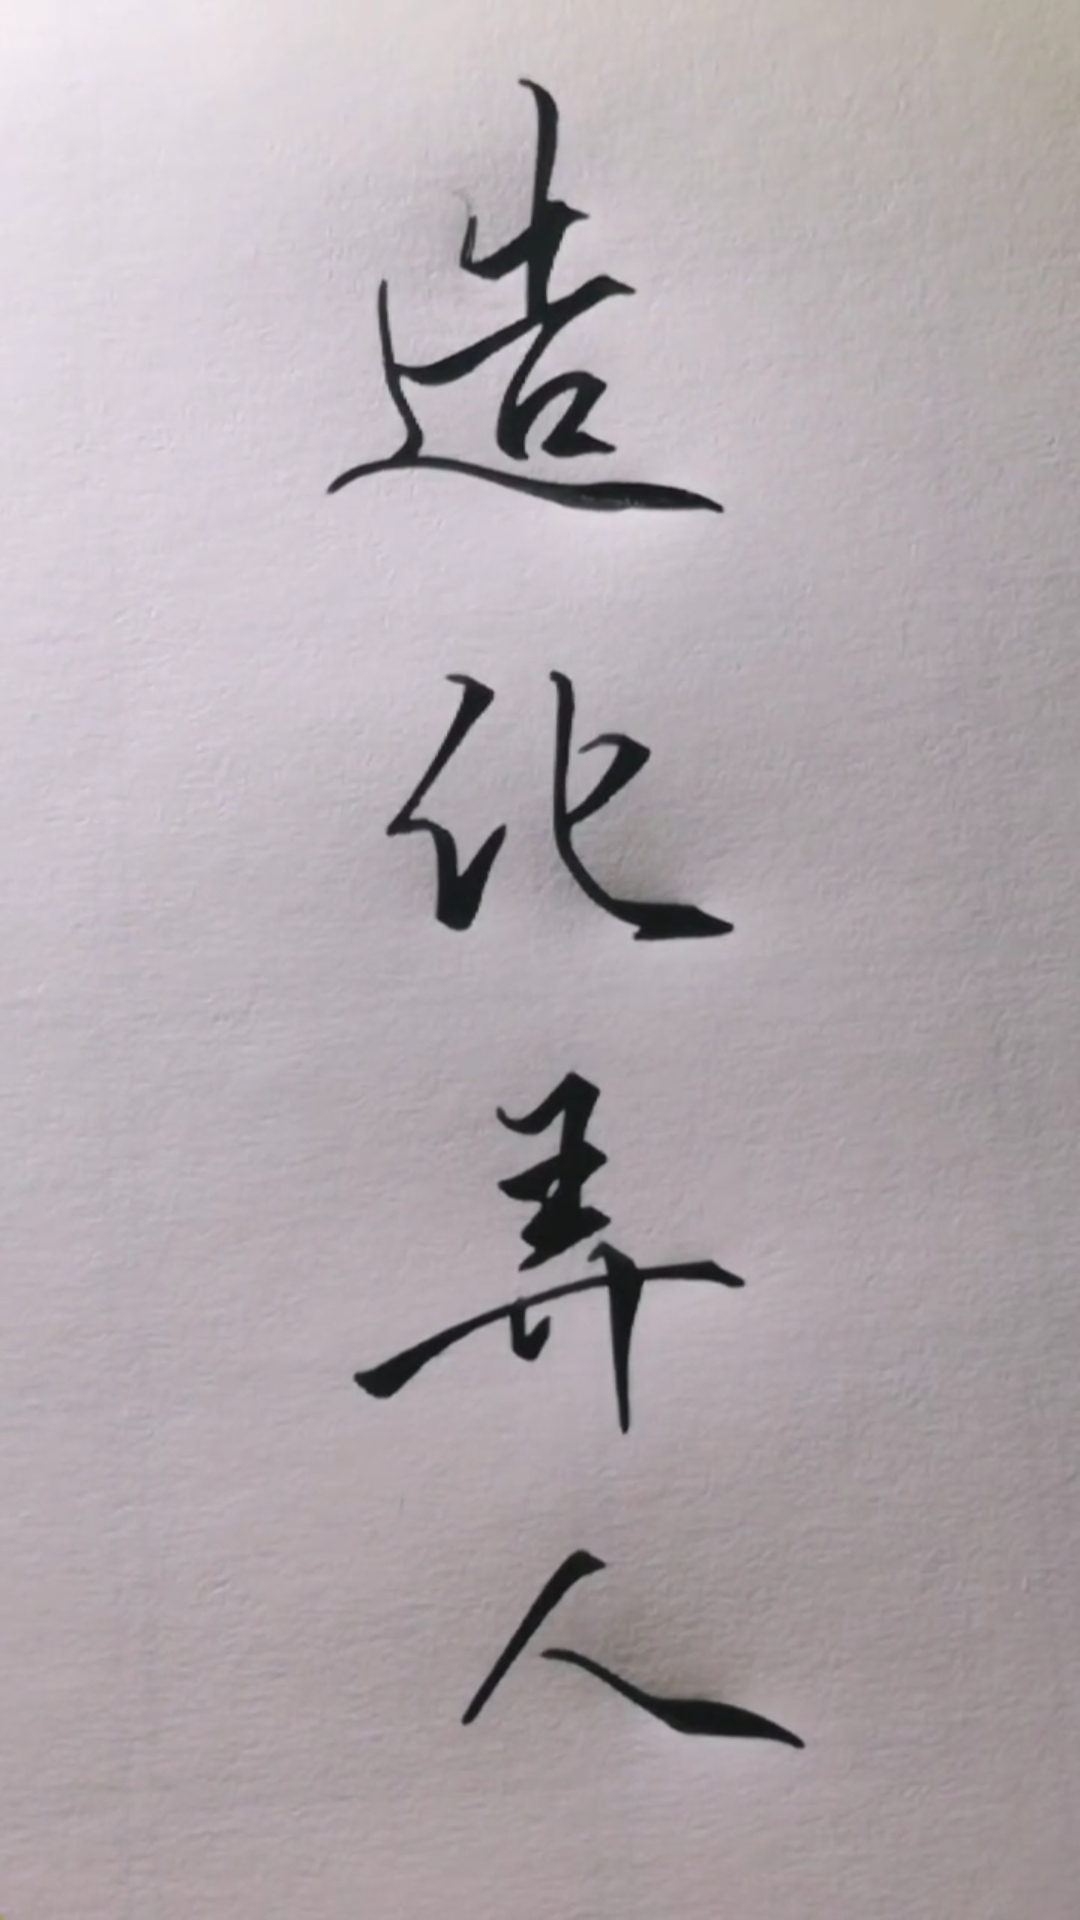 造化弄人